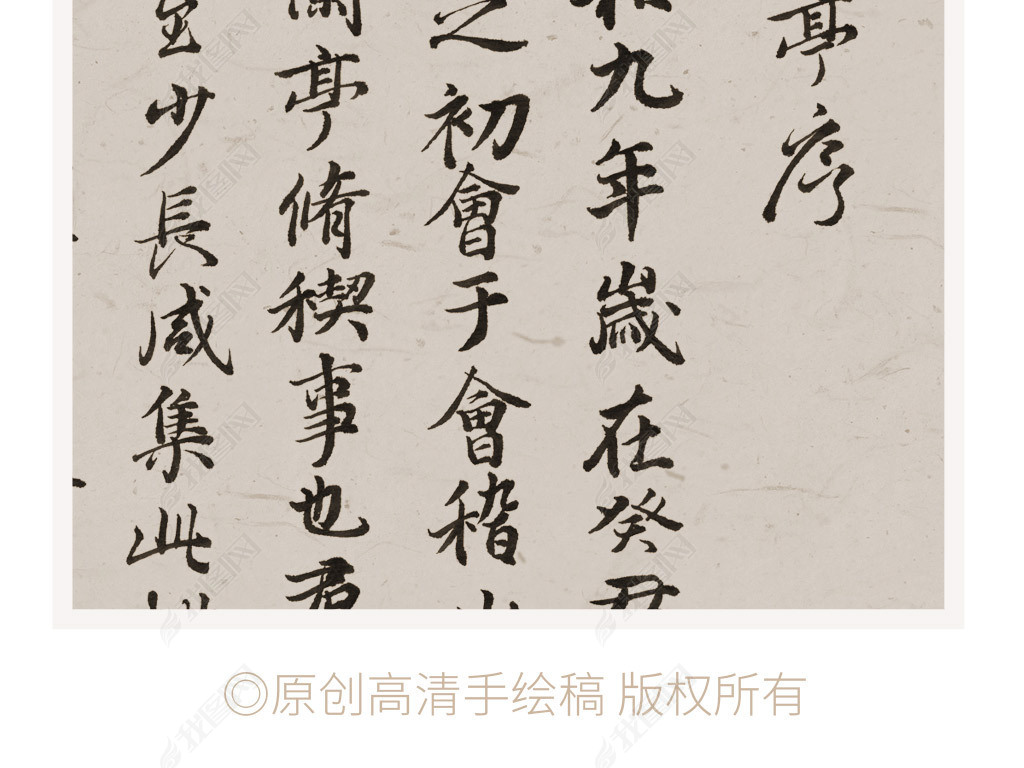 亭序
和九年歲在癸丑
之初會于會稽山
蘭亭脩稧事也羣
至少長咸集此地
◎原创高清手绘稿 版权所有